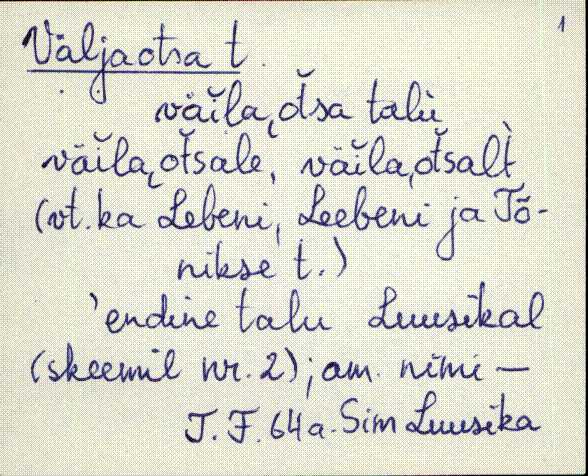 1
Väljaotsa t.
väĭla‿ot̆sa talu̇̀
väĭla‿ot̆sale, väĭla‿ot̆salt̀
(vt. ka Lebeni, Leebeni ja Tõ-
nikse t.)
'endine talu Luusikal
(skeemil nr. 2); am. nimi —
J. F. 64 a. Sim Luusika